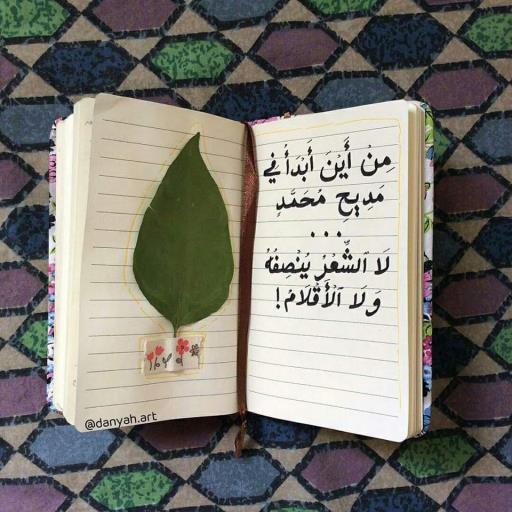 مِنْ أَيْنَ أَبْدَأُ في
مَدِيحِ مُحَمَّدٍ
...
لَا ٱلشِّعْرُ يُنْصِفُهُ
وَلَا ٱلْأَقْلَامُ!
@danyah.art